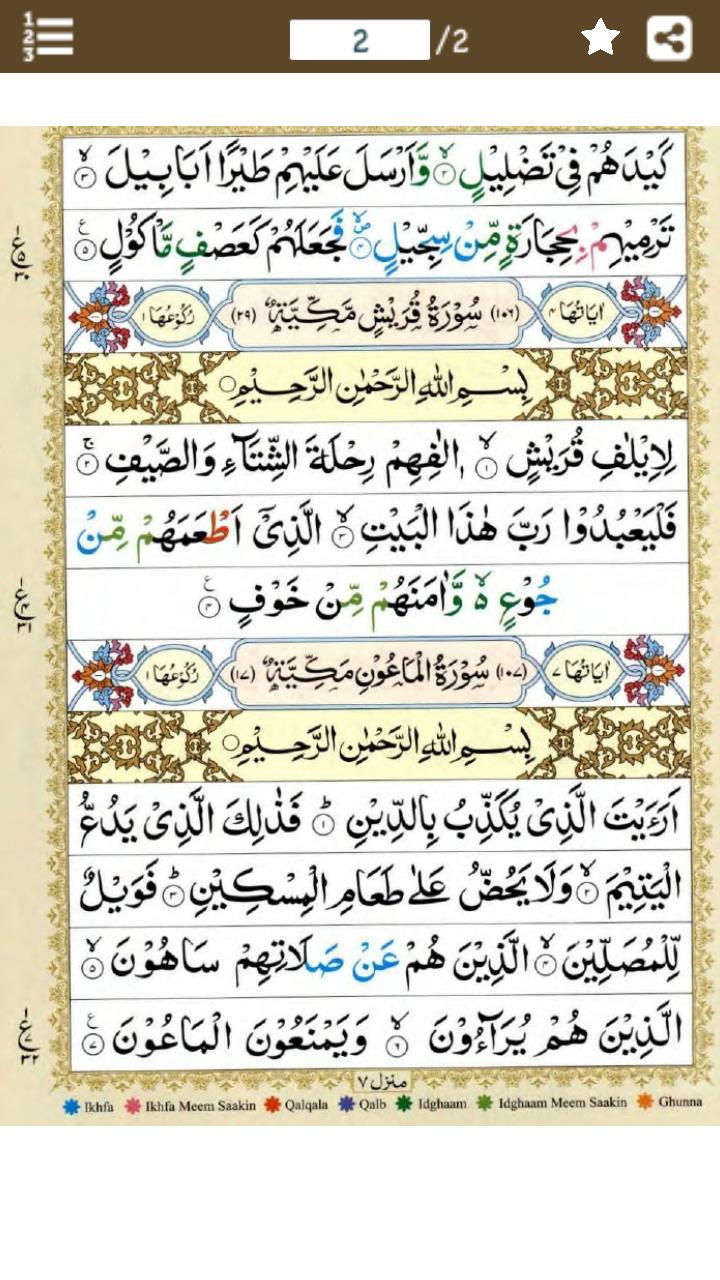 1
2
3
2 /2
كَيْدَهُمْ فِيْ تَضْلِيْلٍ ۙ۝۲ وَّاَرْسَلَ عَلَيْهِمْ طَيْرًا اَبَابِيْلَ ۙ۝۳
تَرْمِيْهِمْ بِحِجَارَةٍ مِّنْ سِجِّيْلٍ ۪ۙ۝۴ فَجَعَلَهُمْ كَعَصْفٍ مَّاْكُوْلٍ ۝۵
ع ۵ ۳۰
اٰيَاتُهَا ۴ (۱۰۶) سُوْرَةُ قُرَيْشٍ مَّكِّيَّةٌ (۲۹) رُكُوْعُهَا ۱
بِسْمِ اللّٰهِ الرَّحْمٰنِ الرَّحِيْمِ ۝
لِاِيْلٰفِ قُرَيْشٍ ۙ۝۱ اٖلٰفِهِمْ رِحْلَةَ الشِّتَآءِ وَالصَّيْفِ ۚ۝۲
فَلْيَعْبُدُوْا رَبَّ هٰذَا الْبَيْتِ ۙ۝۳ الَّذِيْٓ اَطْعَمَهُمْ مِّنْ
جُوْعٍ ۙ۬ وَّاٰمَنَهُمْ مِّنْ خَوْفٍ ۝۴
ع ۴ ۳۱
اٰيَاتُهَا ۷ (۱۰۷) سُوْرَةُ الْمَاعُوْنِ مَكِّيَّةٌ (۱۷) رُكُوْعُهَا ۱
بِسْمِ اللّٰهِ الرَّحْمٰنِ الرَّحِيْمِ ۝
اَرَءَيْتَ الَّذِيْ يُكَذِّبُ بِالدِّيْنِ ؕ۝۱ فَذٰلِكَ الَّذِيْ يَدُعُّ
الْيَتِيْمَ ۙ۝۲ وَلَا يَحُضُّ عَلٰى طَعَامِ الْمِسْكِيْنِ ؕ۝۳ فَوَيْلٌ
لِّلْمُصَلِّيْنَ ۙ۝۴ الَّذِيْنَ هُمْ عَنْ صَلَاتِهِمْ سَاهُوْنَ ۙ۝۵
الَّذِيْنَ هُمْ يُرَآءُوْنَ ۙ۝۶ وَيَمْنَعُوْنَ الْمَاعُوْنَ ۝۷
ع ۷ ۳۲
منزل ۷
Ikhfa Ikhfa Meem Saakin Qalqala Qalb Idghaam Idghaam Meem Saakin Ghunna